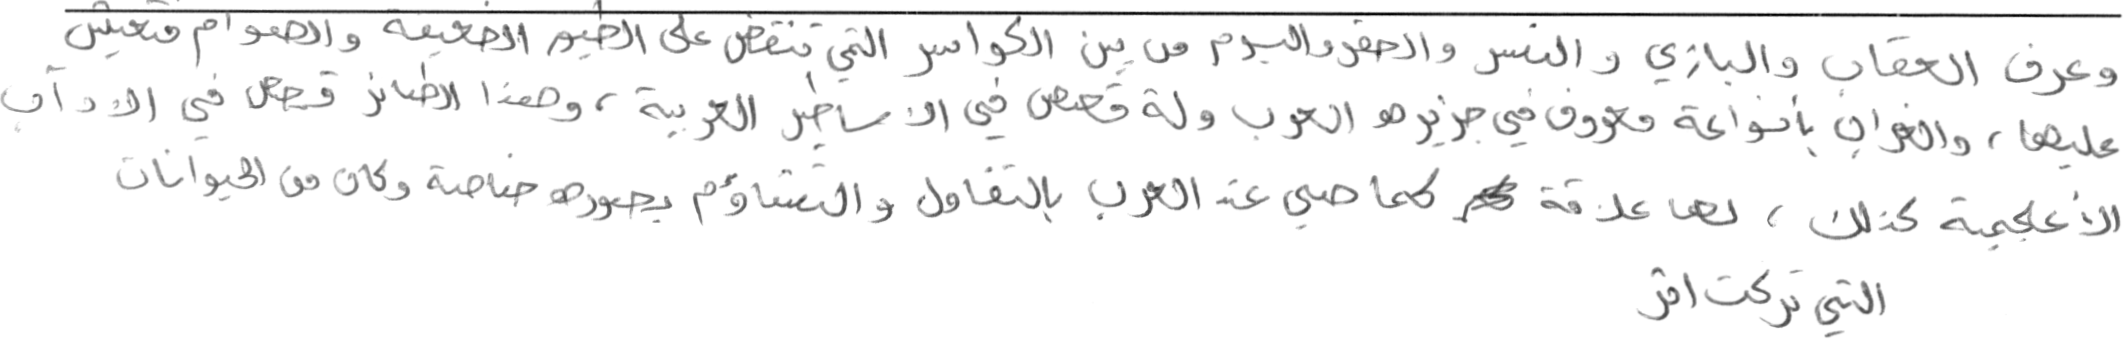 وعرف العقاب والبازي والنسر والصقر والبوم من بين الكواسر التي تنقض على الطيور الضعيفة والهوام فتعيش
عليها، والغراب بأنواعة معروف في جزيره العرب ولة قصص في الاساطير العربية، وهذا الطائر قصص في الادآب
الأعجمية كذلك، لها علاقة كما هي عند العرب بالتفاول والتشاؤم بصوره خاصة وكان من الحيوانات
التي تركت اثر